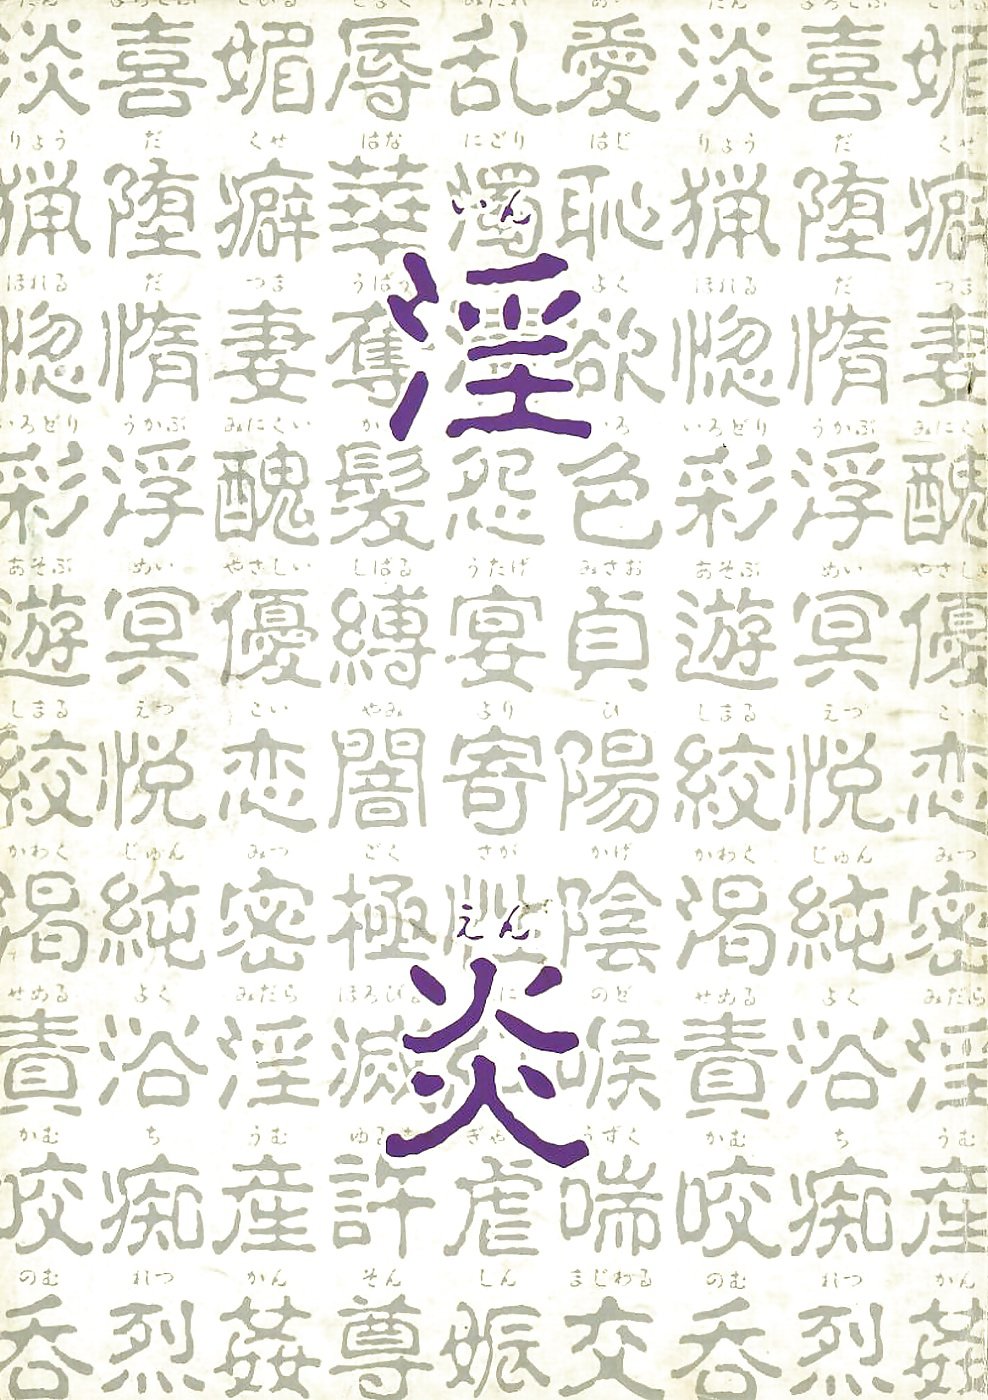 淡 喜 媚 辱 乱 愛 淡 喜 媚
りょう だ くせ はな にごり はじ りょう だ くせ
猟 堕 癖 華 濁 恥 猟 堕 癖
いん
淫
ほれる だ つま うばう よく ほれる だ つま
惚 惰 妻 奪 欲 惚 惰 妻
いろどり うかぶ みにくい いろどり うかぶ みにくい
彩 浮 醜 髪 怨 色 彩 浮 醜
あそぶ めい やさしい しばる うたげ みさお あそぶ めい やさし
遊 冥 優 縛 宴 貞 遊 冥 優
しまる えつ こい やみ より ひ しまる えつ こい
絞 悦 恋 闇 寄 陽 絞 悦 恋
かわく じゅん みつ ごく さが かげ かわく じゅん みつ
渇 純 密 極 性 陰 渇 純 密
えん
炎
せめる よく みだら ほろびる のど せめる よく みだら
責 浴 淫 滅 喉 責 浴 淫
かむ ち うむ うずく かむ ち うむ
咬 痴 産 許 虐 喘 咬 痴 産
のむ れつ かん そん しん まじわる のむ れつ かん
呑 烈 姦 尊 娠 交 呑 烈 姦